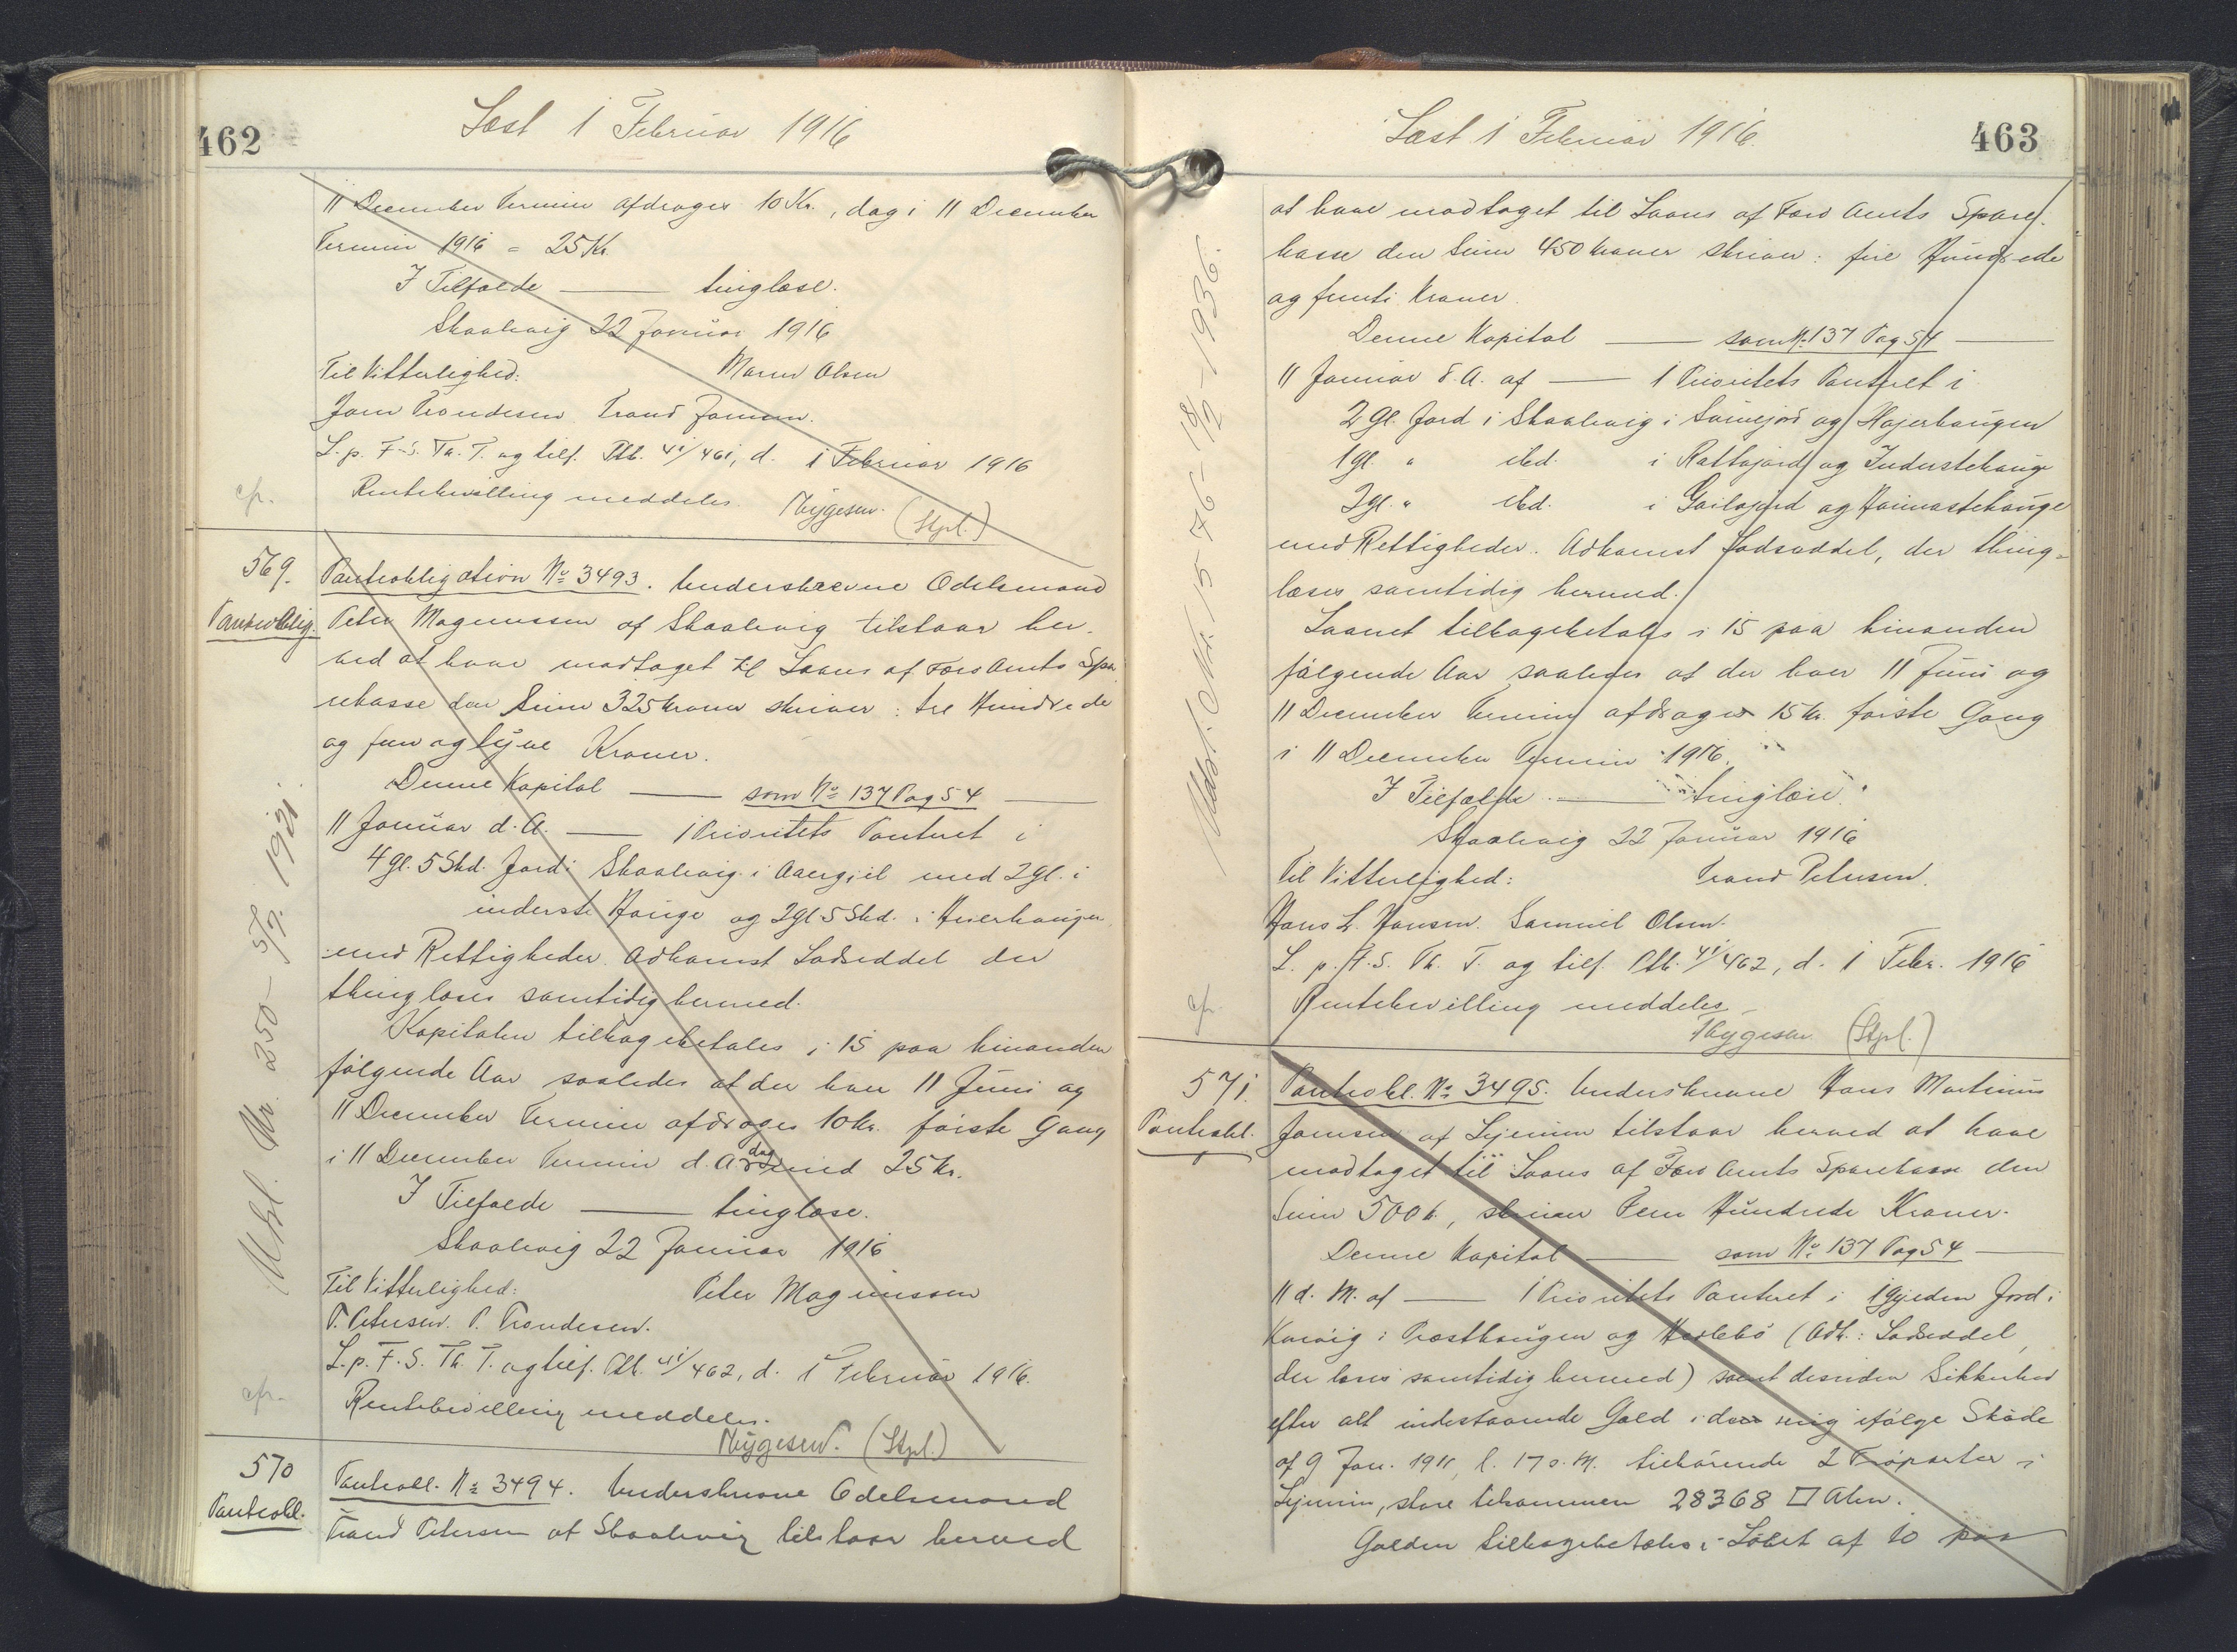 462
Læst 1 Februar 1916
11 December Termin afdrages 10 Kr., dog i 11 December
Termin 1916 = 25 Kr.
I Tilfælde — tinglæse.
Skaalevig 22 Januar 1916
Til Vitterlighed: Olsen
Trondesen Trond
L. p. F. S. Th. T. og tilf. Ptb. 41/461, d. 1 Februar 1916
cfr. Rentebevilling meddeles. Thygesen. (Stpl.)
569. Panteobligation No 3493. Underskrevne Odelsmand
Panteoblig. Peter Magnussen af Skaalevig tilstaar her-
ved at have modtaget til Laans af Færø Amts Spa-
rekasse den Sum 325 Kroner skriver: tre Hundrede
og fem og tyve Kroner.
Denne Kapital — som No 137 Pag 54 —
11 Januar d. A. — 1 Prioritets Panteret i
4 Gl. 5 Skd. Jord i Skaalevig i med 2 Gl. i
inderste Hauge og 2 Gl 5 Skd. i
med Rettigheder. Adkomst Lodseddel der
thinglæses samtidig hermed.
Kapitalen tilbagebetales i 15 paa hinanden
følgende Aar saaledes at der hver 11 Juni og
11 December Termin afdrages 10 Kr. første Gang
i 11 December Termin d. A. dog med 25 Kr.
I Tilfælde — tinglæse.
Skaalevig 22 Januar 1916
Til Vitterlighed: Peter Magnussen
P. Petersen. P. Trondesen.
L. p. F. S. Th. T. og tilf. Ptb. 41/462, d. 1 Februar 1916.
cfr. Rentebevilling meddeles.
Thygesen. (Stpl.)
Udsl. Nr. 250 - 5/7. 1921.
570 Panteobl. No 3494. Underskrevne Odelsmand
Panteobl. Trond Petersen af Skaalevig tilstaar herved
463
Læst 1 Februar 1916.
at have modtaget til Laans af Færø Amts Spare-
kasse den Sum 450 Kroner skriver: fire Hundrede
og femti Kroner.
Denne Kapital — som No 137 Pag 54 —
11 Januar d. A. af — 1 Prioritets Panteret i
2 Gl. Jord i Skaalevig i og Hajerhaugen
1 Gl. " ibd. i og Inderstehauge
2 Gl. " ibd. i og
med Rettigheder. Adkomst Lodseddel, der thing-
læses samtidig hermed.
Laanet tilbagebetales i 15 paa hinanden
følgende Aar saaledes at der hver 11 Juni og
11 December Termin afdrages 15 Kr. første Gang
i 11 December Termin 1916.
I Tilfælde — tinglæse.
Skaalevig 22 Januar 1916
Til Vitterlighed: Trond Petersen.
Hans L. Hansen. Samuel Olsen.
L. p. F. S. Th. T. og tilf. Ptb. 41/462, d. 1 Febr. 1916
cfr. Rentebevilling meddeles
Thygesen (Stpl.)
Udsl. Nr. 15-76- 18/2-1936.
571. Panteobl. No 3495. Underskrevne Hans Martinus
Panteobl. Joensen af Lejenim tilstaar herved at have
modtaget til Laans af Færø Amts Sparekasse den
Sum 500 K., skriver Fem Hundrede Kroner.
Denne Kapital — som No. 137 Pag 54 —
11 d. M. af — 1 Prioritets Panteret i 1 Gylden Jord i
i og (Adk.: Lodseddel,
der læses samtidig hermed) samt desuden Sikkerhed
efter alt indestaaende Gæld i den mig ifølge Skøde
af 9 Jan. 1911, l. 17 s. M. tilhørende 2 Trøparter i
Lejenim, store tilsammen 28368 □ Alen.
Gælden tilbagebetales i Løbet af 10 paa